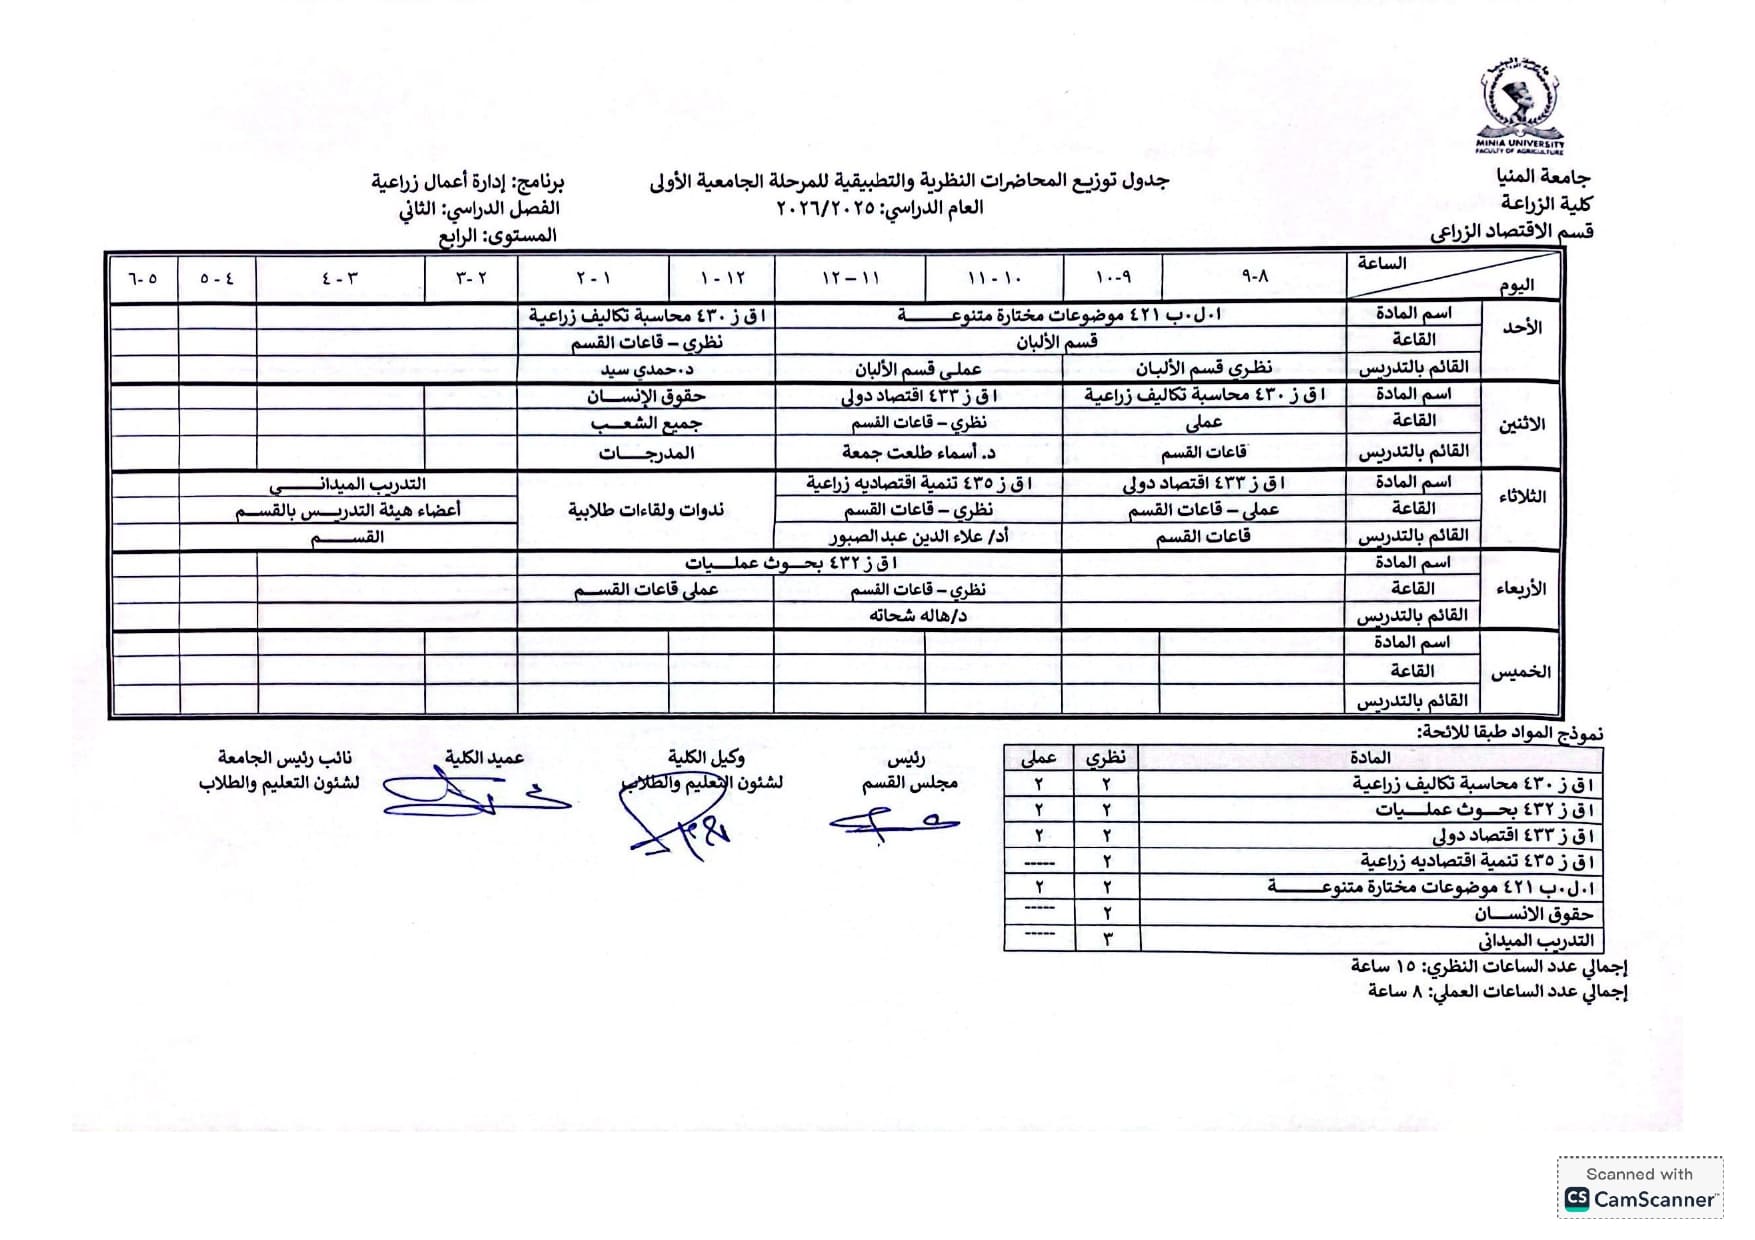 جامعة المنيا
MINIA UNIVERSITY
FACULTY OF AGRICULTURE
جامعة المنيا
كلية الزراعة
قسم الاقتصاد الزراعي
جدول توزيع المحاضرات النظرية والتطبيقية للمرحلة الجامعية الأولى
العام الدراسي: ٢٠٢٦/٢٠٢٥
برنامج: إدارة أعمال زراعية
الفصل الدراسي: الثاني
المستوى: الرابع
الساعة
اليوم
٨-٩ ٩-١٠ ١٠-١١ ١١-١٢ ١٢-١ ١-٢ ٢-٣ ٣-٤ ٤-٥ ٥-٦
الأحد
اسم المادة ا.ل.ب ٤٢١ موضوعات مختارة متنوعـــــــة ا ق ز ٤٣٠ محاسبة تكاليف زراعية
القاعة قسم الألبان نظري – قاعات القسم
القائم بالتدريس نظري قسم الألبان عملي قسم الألبان د.حمدي سيد
الاثنين
اسم المادة ا ق ز ٤٣٠ محاسبة تكاليف زراعية ا ق ز ٤٣٣ اقتصاد دولى حقوق الإنســـان
القاعة عملى نظري – قاعات القسم جميع الشعــب
القائم بالتدريس قاعات القسم د. أسماء طلعت جمعة المدرجـــات
الثلاثاء
اسم المادة ا ق ز ٤٣٣ اقتصاد دولى ا ق ز ٤٣٥ تنمية اقتصاديه زراعية ندوات ولقاءات طلابية التدريب الميدانـــــي
القاعة عملى – قاعات القسم نظري – قاعات القسم أعضاء هيئة التدريــس بالقســم
القائم بالتدريس قاعات القسم أد/ علاء الدين عبد الصبور القســــم
الأربعاء
اسم المادة ا ق ز ٤٣٢ بحـــوث عملـــيات
القاعة نظري – قاعات القسم عملى قاعات القســـم
القائم بالتدريس د/هاله شحاته
الخميس
اسم المادة
القاعة
القائم بالتدريس
نموذج المواد طبقا للائحة:
المادة نظري عملى
ا ق ز ٤٣٠ محاسبة تكاليف زراعية ٢ ٢
ا ق ز ٤٣٢ بحـــوث عملـــيات ٢ ٢
ا ق ز ٤٣٣ اقتصاد دولى ٢ ٢
ا ق ز ٤٣٥ تنمية اقتصاديه زراعية ٢ -----
ا.ل.ب ٤٢١ موضوعات مختارة متنوعـــــــة ٢ ٢
حقوق الانســـان ٢ -----
التدريب الميدانى ٣ -----
إجمالي عدد الساعات النظري: ١٥ ساعة
إجمالي عدد الساعات العملي: ٨ ساعة
رئيس
مجلس القسم
وكيل الكلية
لشئون التعليم والطلاب
عميد الكلية
نائب رئيس الجامعة
لشئون التعليم والطلاب
Scanned with
CS CamScanner